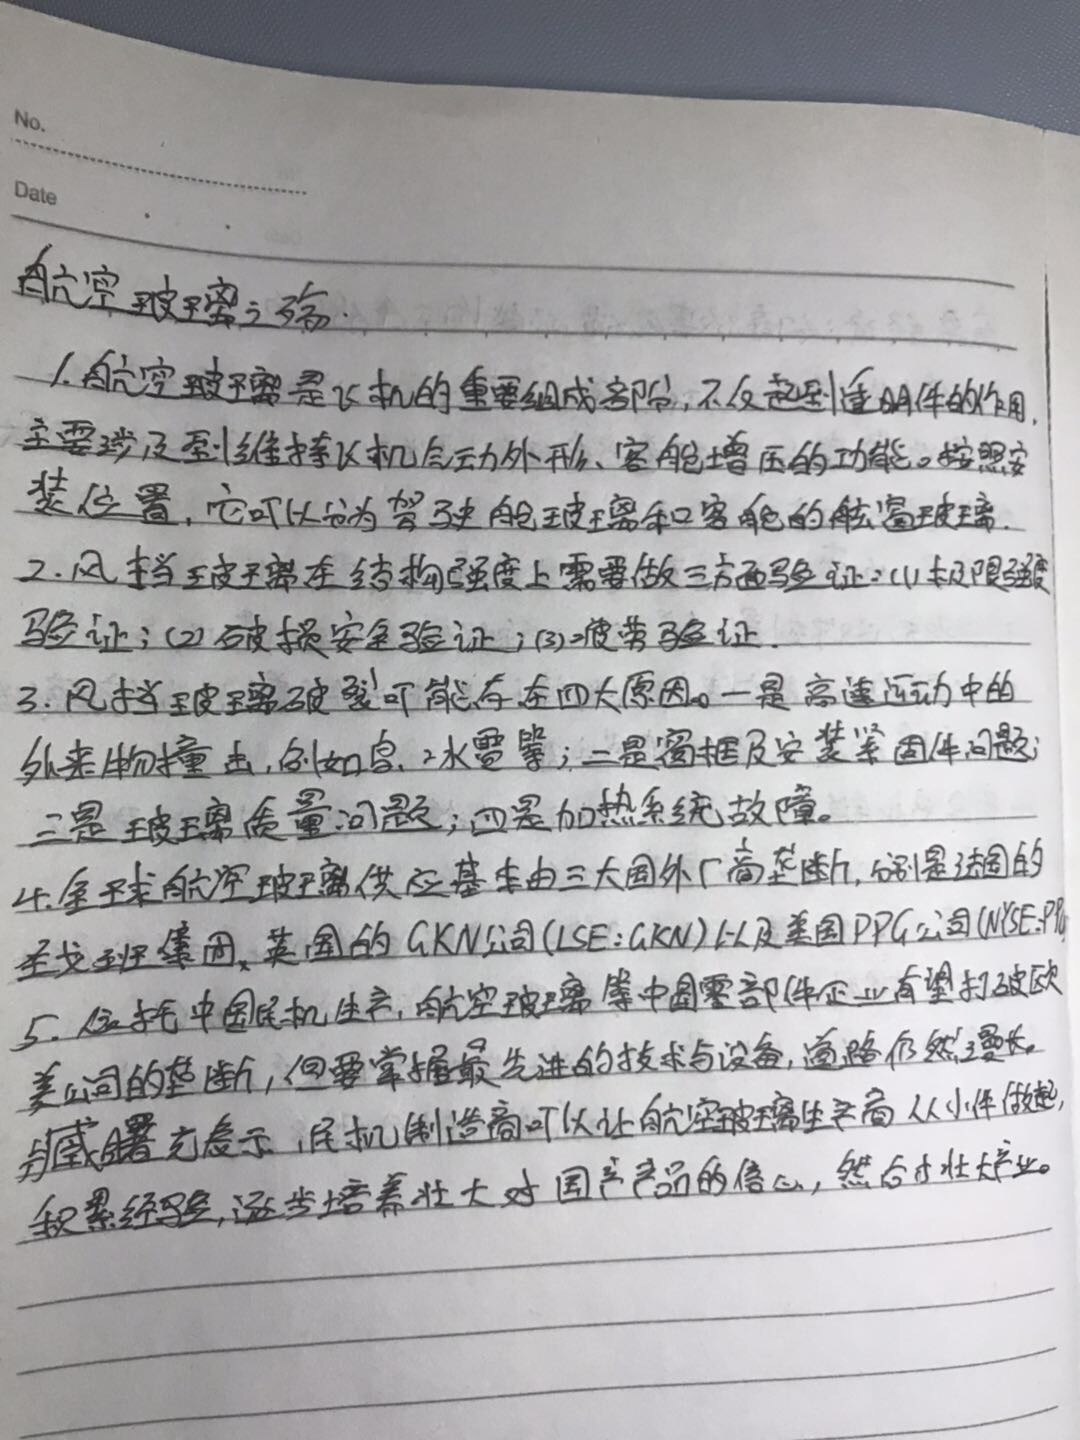 No.
Date
航空玻璃之殇.
1.航空玻璃是飞机的重要组成部份,不仅起到透明件的作用,
主要涉及到维持飞机气动外形、客舱增压的功能。按照安
装位置,它可以分为驾驶舱玻璃和客舱的舷窗玻璃.
2.风挡玻璃在结构强度上需要做三方面验证:(1)极限强度
验证;(2)破损安全验证;(3)疲劳验证.
3.风挡玻璃破裂可能存在四大原因。一是高速运动中的
外来物撞击,例如鸟、冰雹等;二是窗框及安装紧固件问题;
三是玻璃质量问题;四是加热系统故障。
4.全球航空玻璃供应基本由三大国外厂商垄断,分别是法国的
圣戈班集团、英国的GKN公司(LSE:GKN)以及美国PPG公司(NYSE:PPG
5.依托中国民机生产,航空玻璃等中国零部件企业有望打破欧
美公司的垄断,但要掌握最先进的技术与设备,道路仍然漫长。
臧曙光表示,民机制造商可以让航空玻璃生产商从小件做起,
积累经验,逐步培养壮大对国产产品的信心,然后才壮大产业。